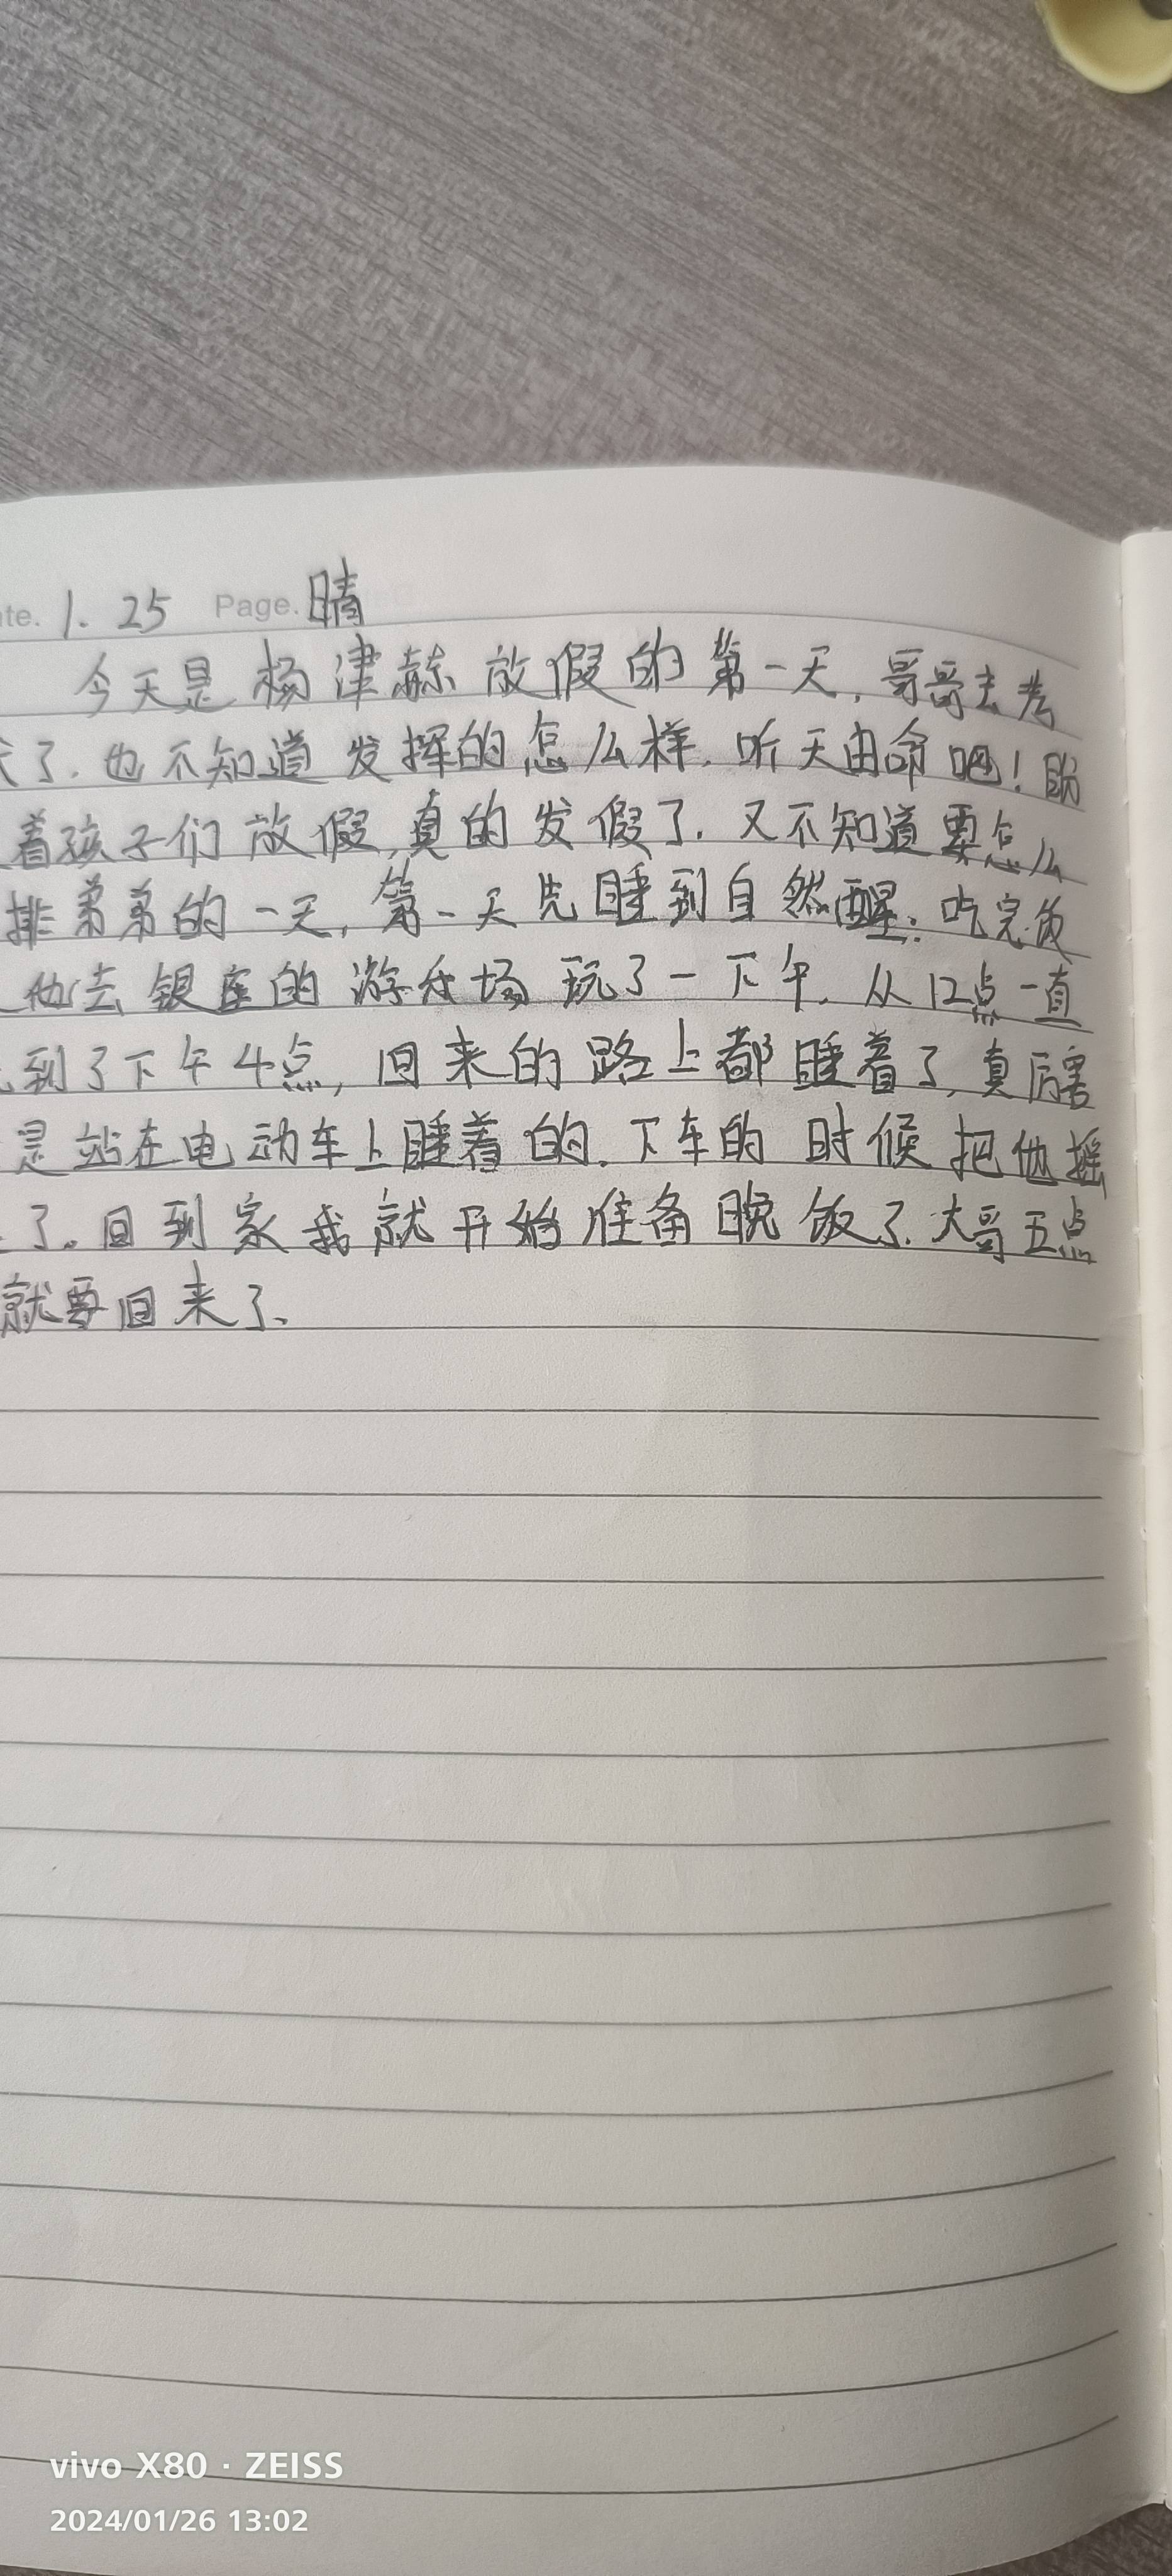 te. 1. 25 Page. 晴
今天是杨津赫放假的第一天，哥哥去考
了．也不知道发挥的怎么样．听天由命吧！盼
着孩子们放假，真的发假了．又不知道要怎么
排弟弟的一天，第一天先睡到自然醒．吃完饭
他去银座的游乐场玩了一下午．从12点一直
到了下午4点，回来的路上都睡着了，真厉害
是站在电动车上睡着的．下车的时候把他摇
了。回到家我就开始准备晚饭了．大哥五点
就要回来了、
vivo X80 · ZEISS
2024/01/26 13:02